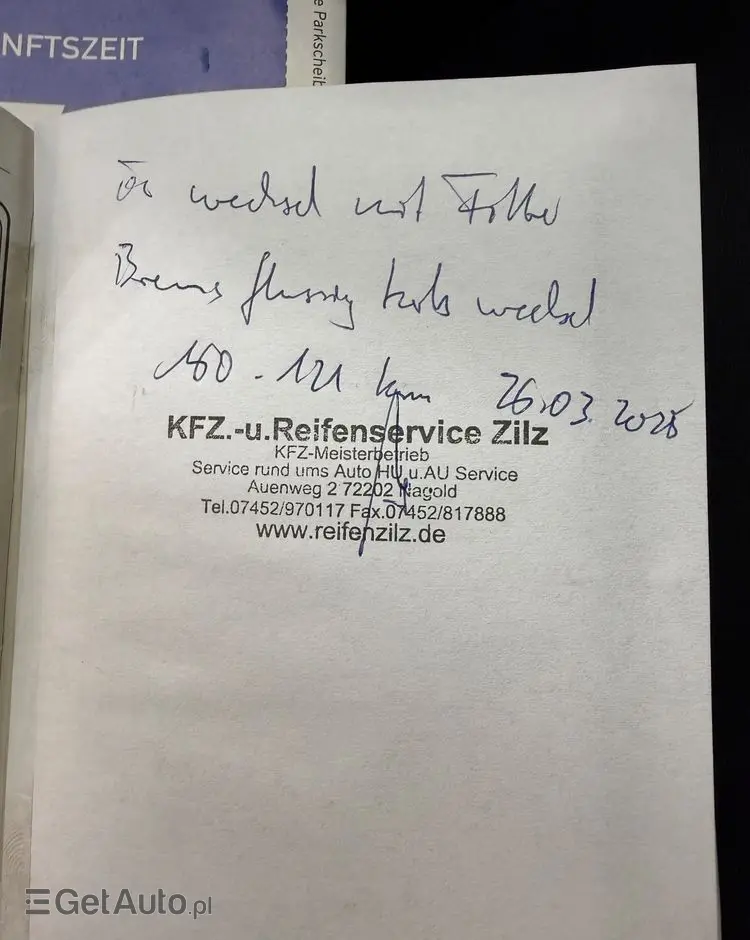 NFTSZEIT
e Parkscheib
Öl wechsel mit Filter
Brems flüssig keits wechsel
160 - 121 km 26.03.2025
KFZ.-u.Reifenservice Zilz
KFZ-Meisterbetrieb
Service rund ums Auto HU u.AU Service
Auenweg 2 72202 Nagold
Tel.07452/970117 Fax.07452/817888
www.reifenzilz.de
GetAuto.pl